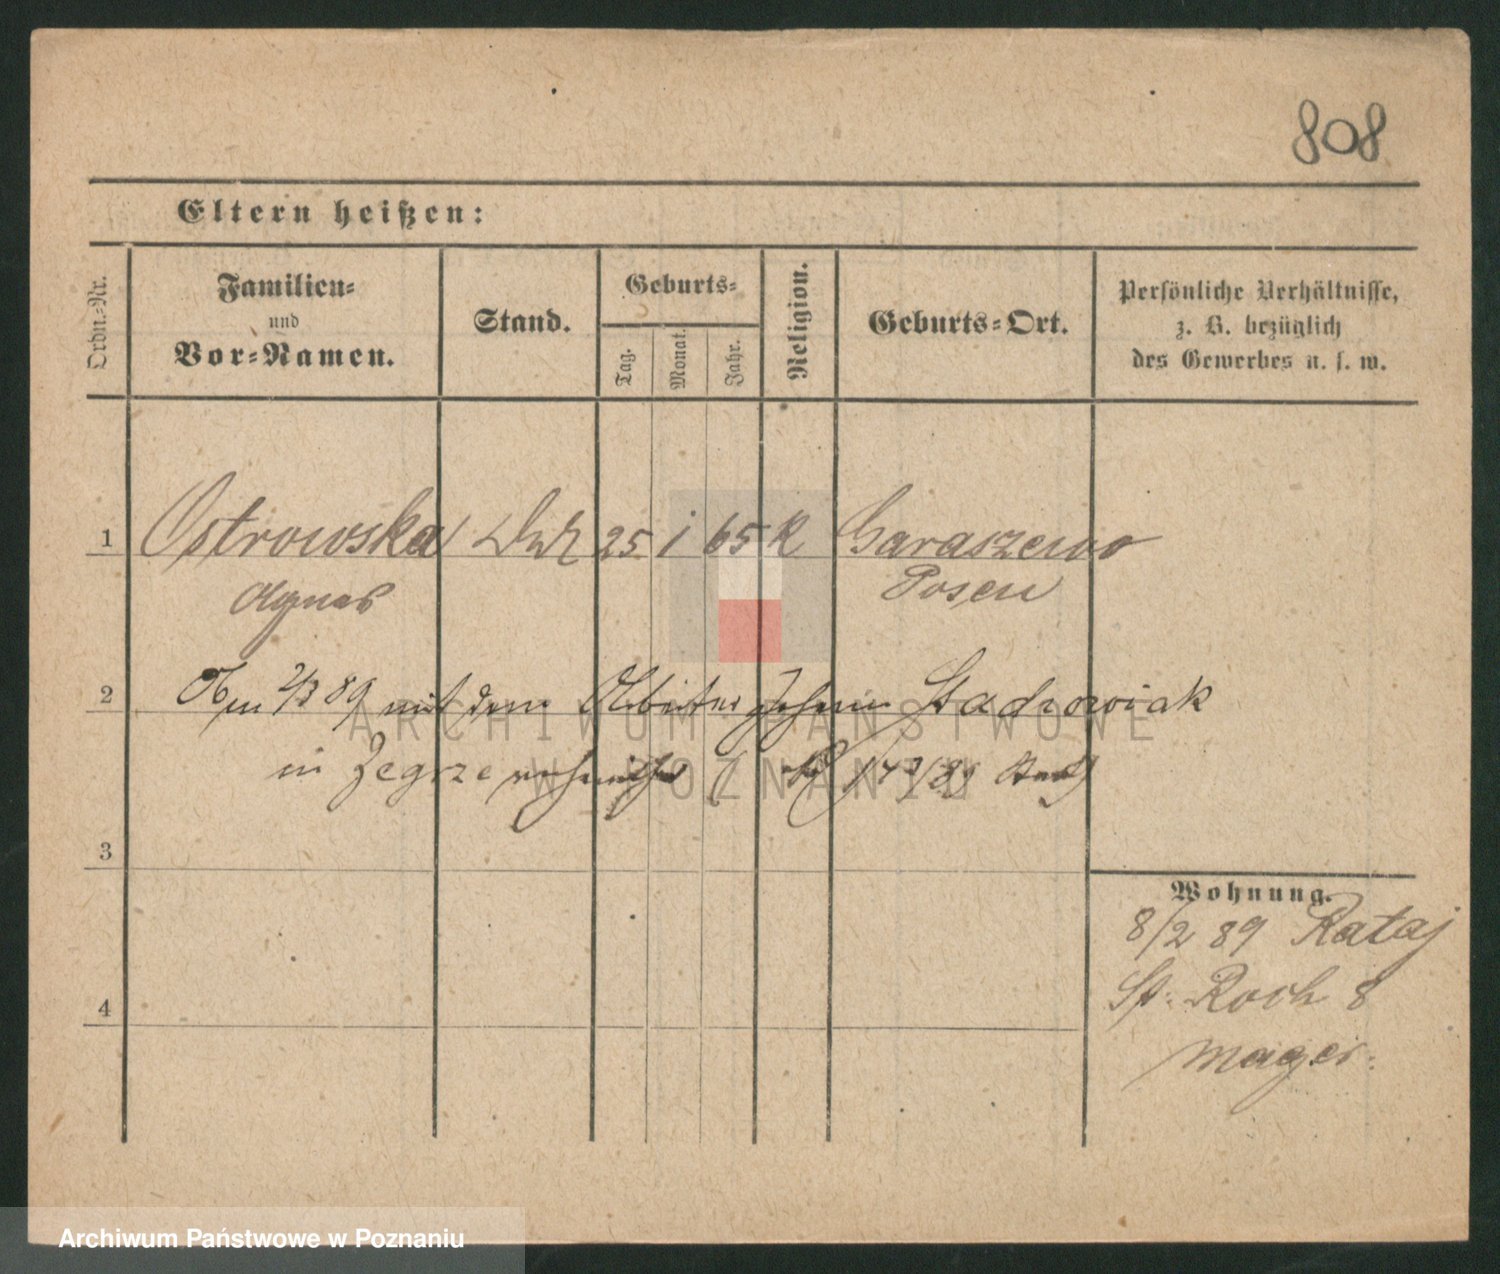 808
Eltern heißen:
Ordn.-Nr.
Familien-
und
Vor-Namen.
Stand.
Geburts-
Tag.
Monat.
Jahr.
Religion.
Geburts-Ort.
Persönliche Verhältnisse,
z. B. bezüglich
des Gewerbes u. s. w.
1 Ostrowska 25 1 65 K Garaszewo
Agnes Posen
2 Am 2/3 89 mit dem Arbeiter Johann Stachowiak
in Zegrze
3
4
Wohnung.
8/2 89 Rataj
St. Roch 8
Mager.
ARCHIWUM PAŃSTWOWE
W POZNANIU
Archiwum Państwowe w Poznaniu